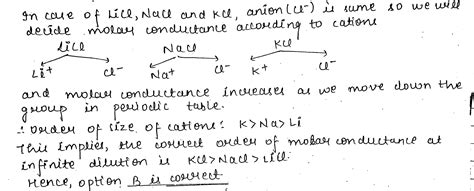 In case of LiCl, NaCl and KCl, anion (Cl⁻) is same so we will
decide molar conductance according to cations
LiCl NaCl KCl
Li⁺ Cl⁻ Na⁺ Cl⁻ K⁺ Cl⁻
and molar conductance increases as we move down the
group in periodic table.
∴ Order of size of cations: K>Na>Li
This implies, the correct order of molar conductance at
infinite dilution is KCl>NaCl>LiCl.
Hence, option B is correct